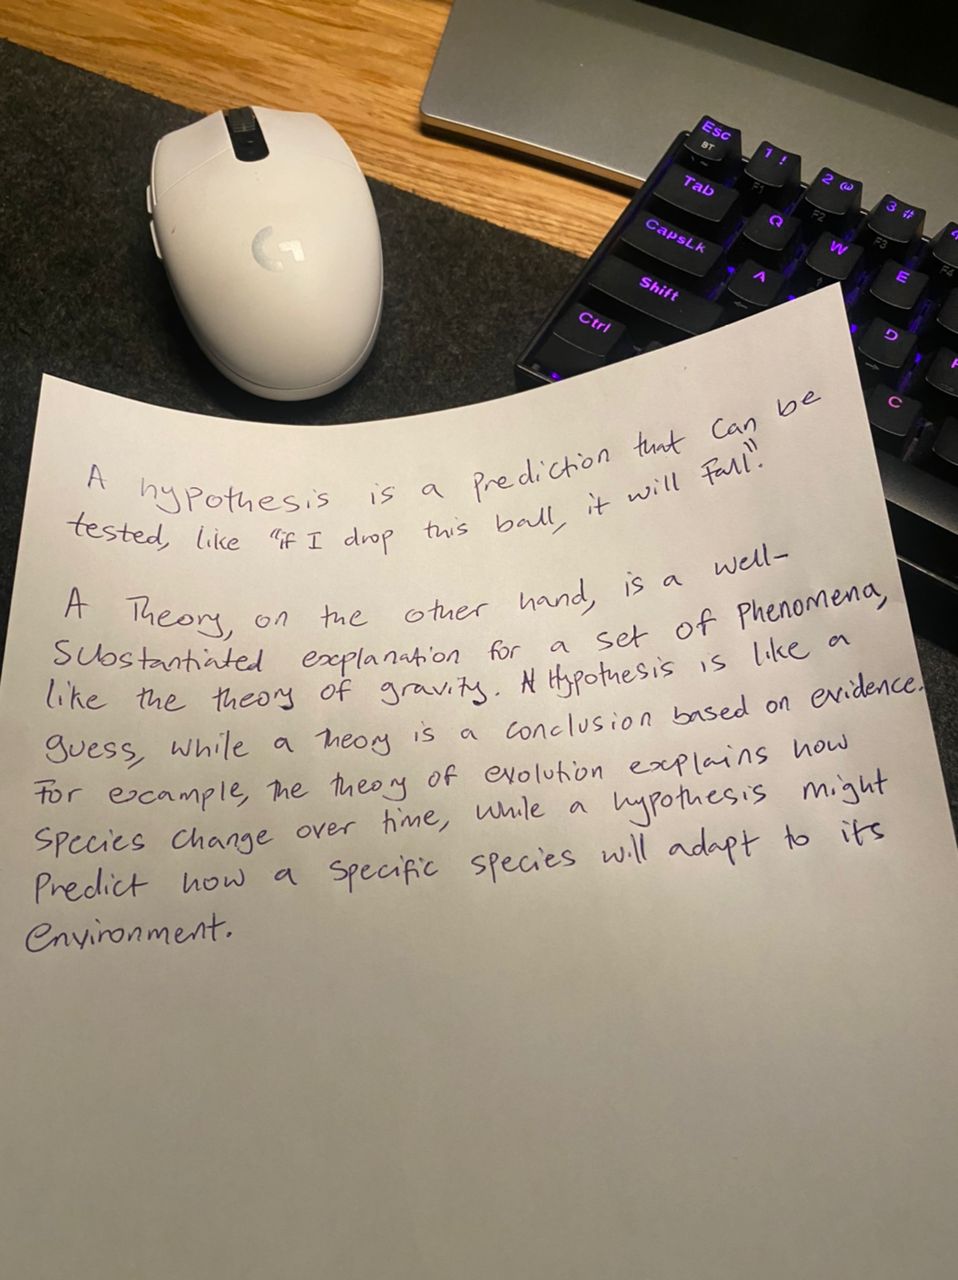 Esc
BT
1 !
F1
2 @
F2
3 #
F3
4
F4
Tab
Q
W
E
CapsLk
A
D
F
Shift
C
Ctrl
G
A hypothesis is a prediction that can be
tested, like "if I drop this ball, it will fall".
A Theory, on the other hand, is a well-
substantiated explanation for a set of phenomena,
like the theory of gravity. A Hypothesis is like a
guess, while a theory is a conclusion based on evidence.
For example, the theory of evolution explains how
species change over time, while a hypothesis might
predict how a specific species will adapt to its
environment.